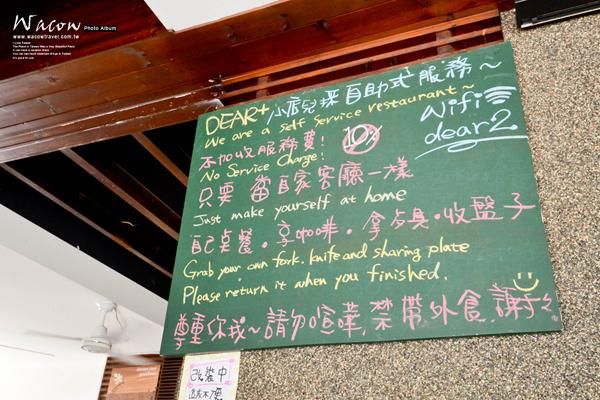 Wacow Photo Album
www.wacowtravel.com.tw
DEAR+小店兒採自助式服務~
We are a self service restaurant~
Wifi
dear2
不加收服務費! 10%
No Service Charge!
只要 當自家客廳一樣
Just make yourself at home
自己桌餐。享咖啡。拿刀具。收盤子
Grab your own fork. knife and sharing plate
Please return it when you finished.
尊重你我~請勿喧嘩.禁帶外食.謝于
改裝中